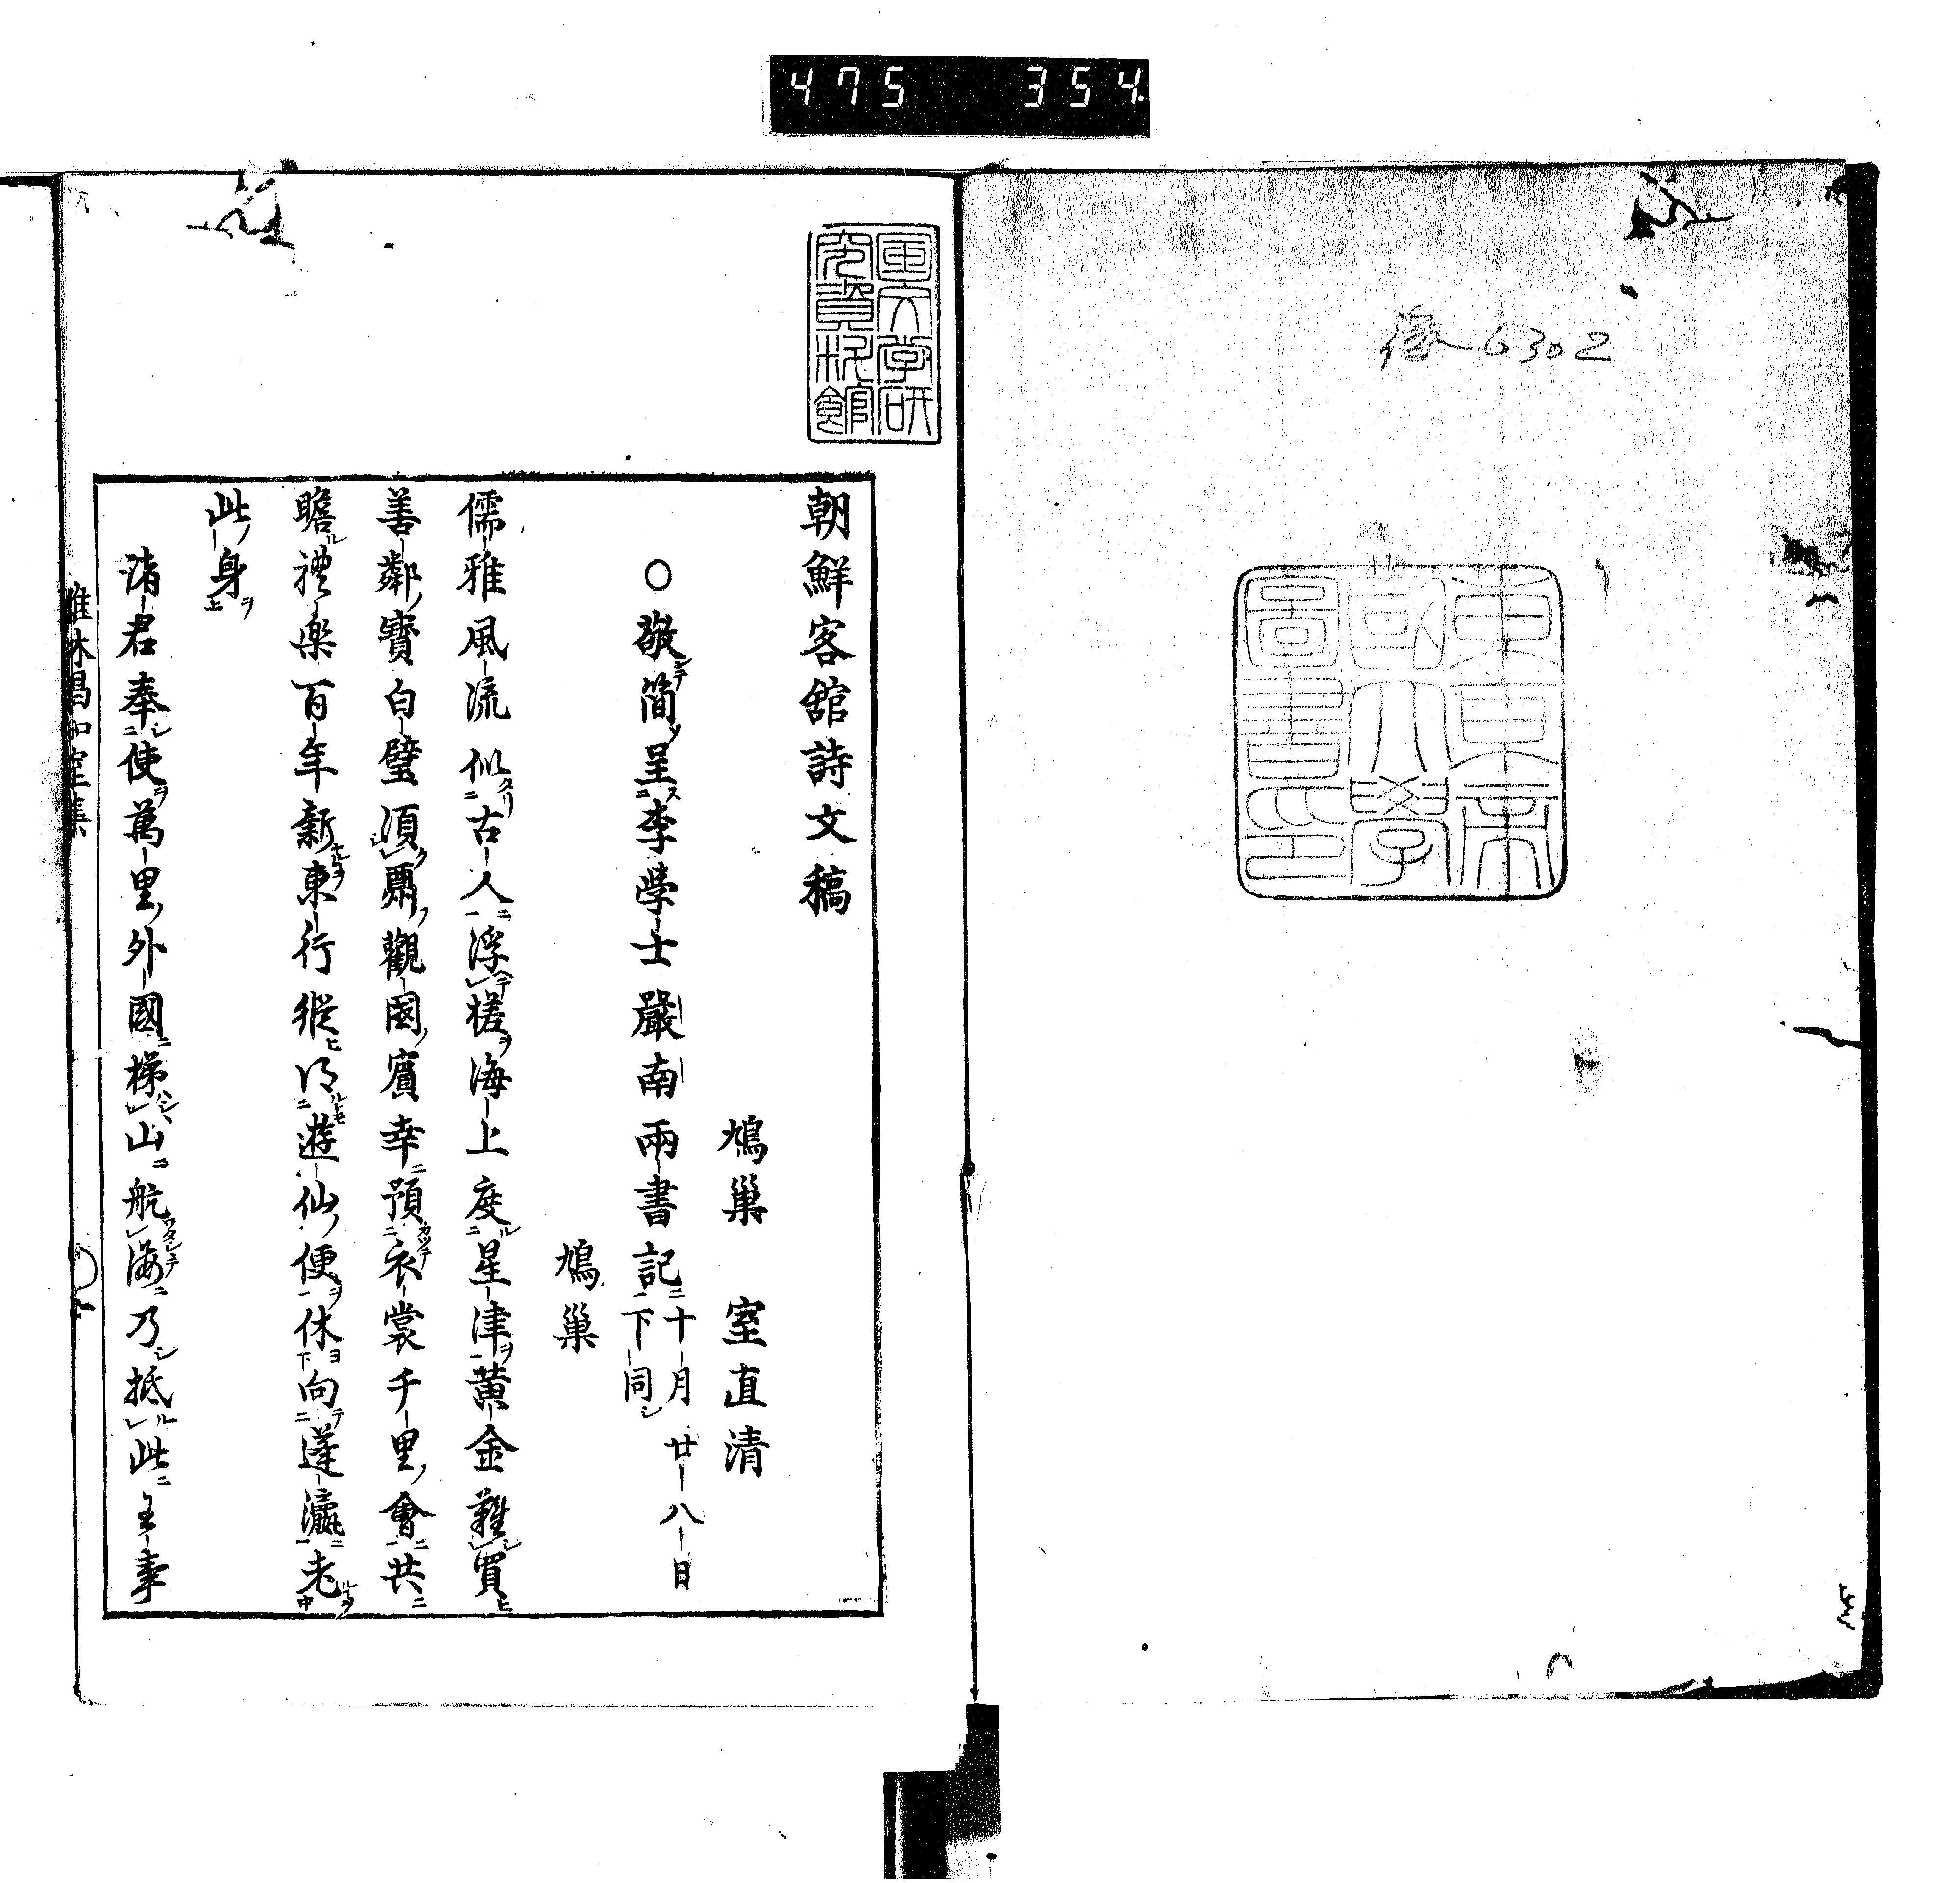 475 354
6302
東京帝
國大學
圖書印
国文学研
究資料館
朝鮮客館詩文稿
鳩巢 室直清
○敬簡呈李學士嚴南兩書記 十月廿八日
下同
鳩巢
儒雅風流似古人浮槎海上度星津黄金難買
善鄰寶白璧須酬觀國賓幸預衣裳千里會共
瞻禮樂百年新東行縱得遊仙便休向蓬瀛老
此身
諸君奉使萬里外國梯山航海乃抵此至事